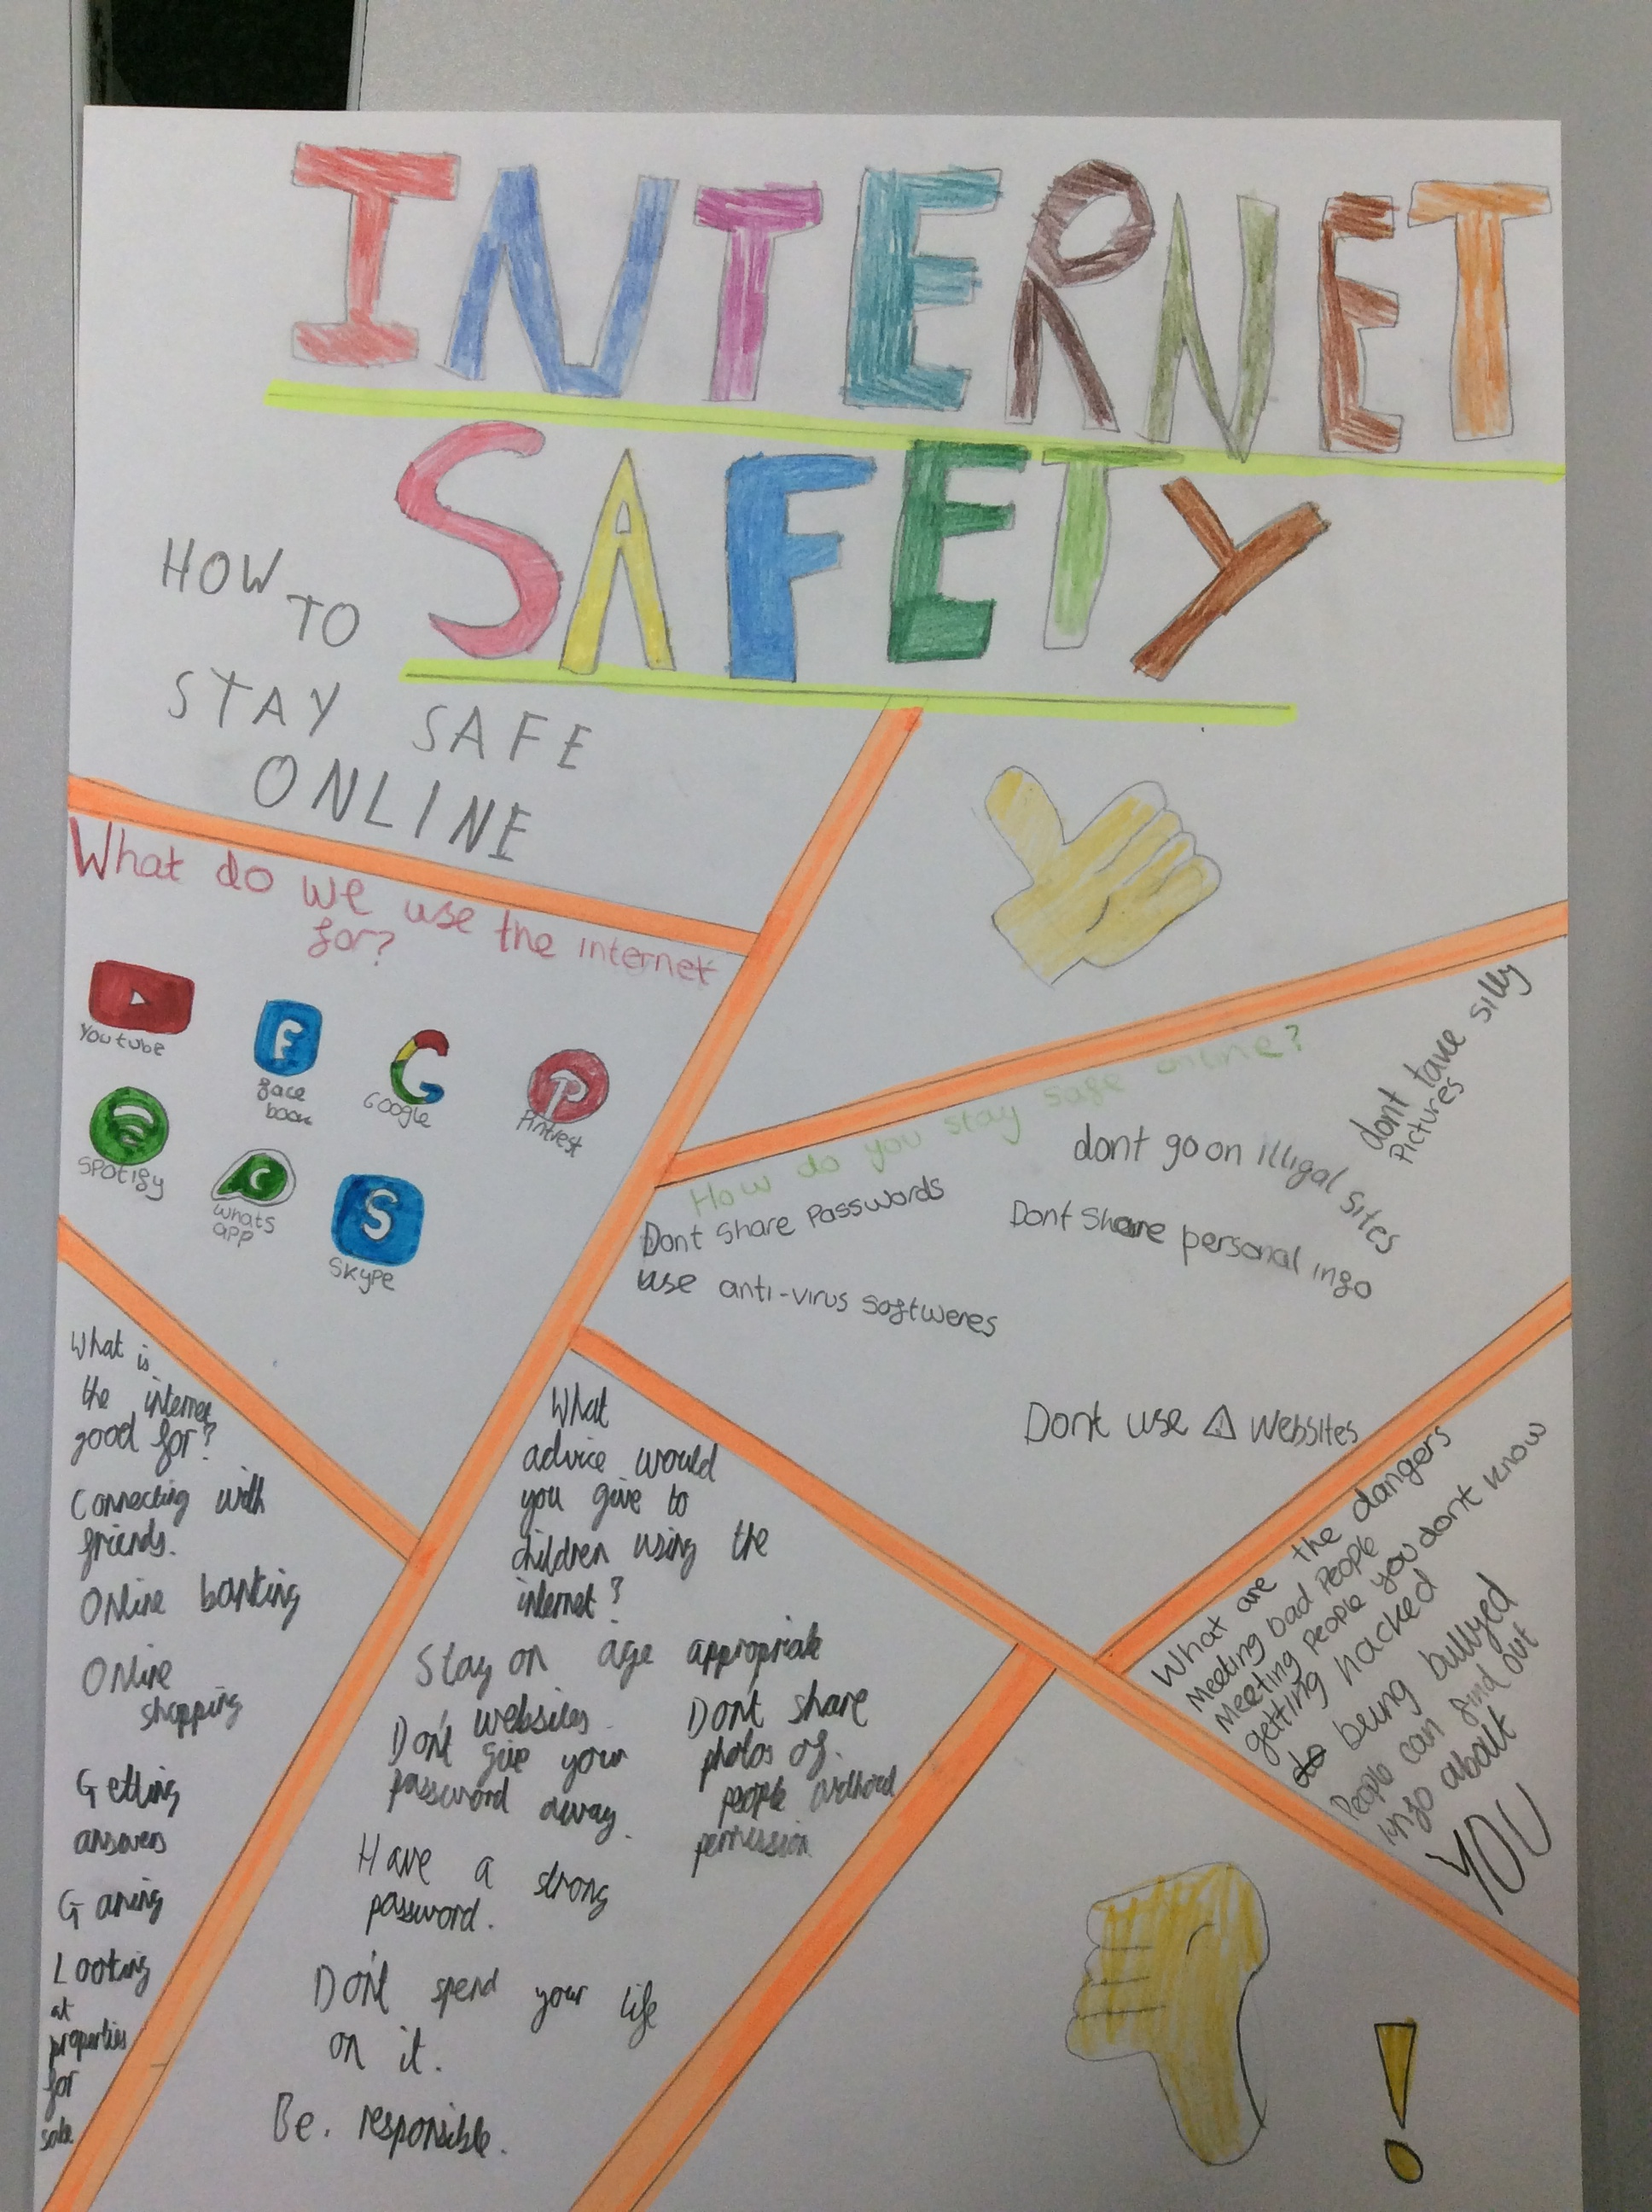 INTERNET
SAFETY
HOW
TO
STAY SAFE
ONLINE
What do we use the internet
for?
Youtube
face
book
Google
Pintrest
Spotify
whats
app
Skype
How do you stay safe online?
Dont share Passwords
use anti-virus softweres
dont go on illigal sites
Dont Share personal info
dont take silly
Pictures
Dont use ⚠ websites
What is
the internet
good for?
Connecting with
friends.
Online banking
Online
shopping
Getting
answers
Gaming
Looking
at
properties
for
sale
What
advice would
you give to
children using the
internet?
Stay on age appropriate
websites.
Don't give your
password away.
Dont share
photos of
people without
permission
Have a strong
password.
Don't spend your life
on it.
Be. responsible.
What are the dangers
Meeting bad People
Meeting People you dont know
getting hacked
being bullyed
People can find out
info about
YOU
!